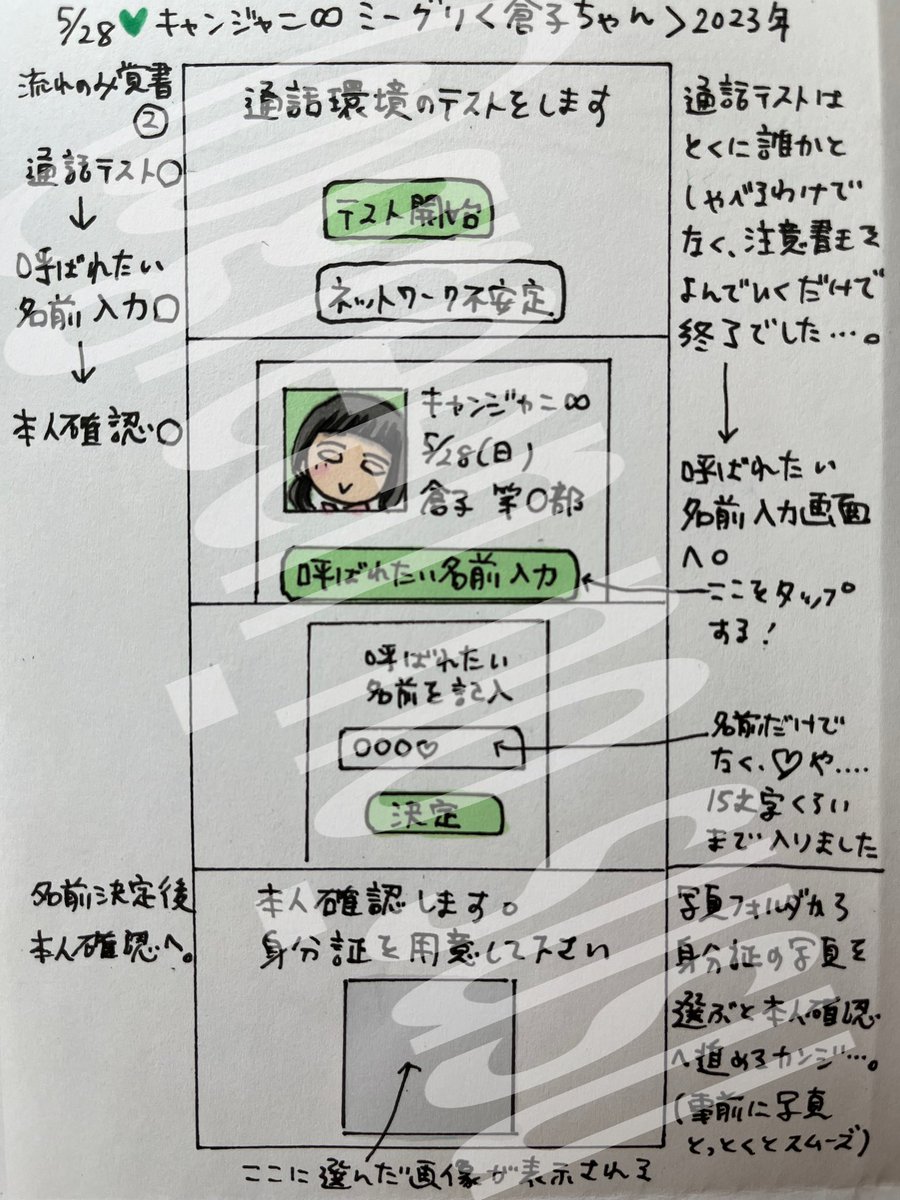 5/28♥キャンジャニ∞ミーグリ<倉子ちゃん>2023年
流れのみ覚書
②
通話テスト○
↓
呼ばれたい
名前入力○
↓
本人確認○
通話環境のテストをします
テスト開始
ネットワーク不安定
通話テストは
とくに誰かと
しゃべるわけで
なく、注意書きを
よんでいくだけで
終了でした…。
↓
呼ばれたい
名前入力画面
へ。
キャンジャニ∞
5/28(日)
倉子 第○部
呼ばれたい名前入力
ここをタップ
する!
呼ばれたい
名前を記入
○○○♡
決定
名前だけで
なく、♡や....
15文字くらい
まで入りました
名前決定後
本人確認へ。
本人確認します。
身分証を用意して下さい
写真フォルダから
身分証の写真を
選ぶと本人確認
へ進めるカンジ…。
(事前に写真
とっとくとスムーズ)
ここに選んだ画像が表示される